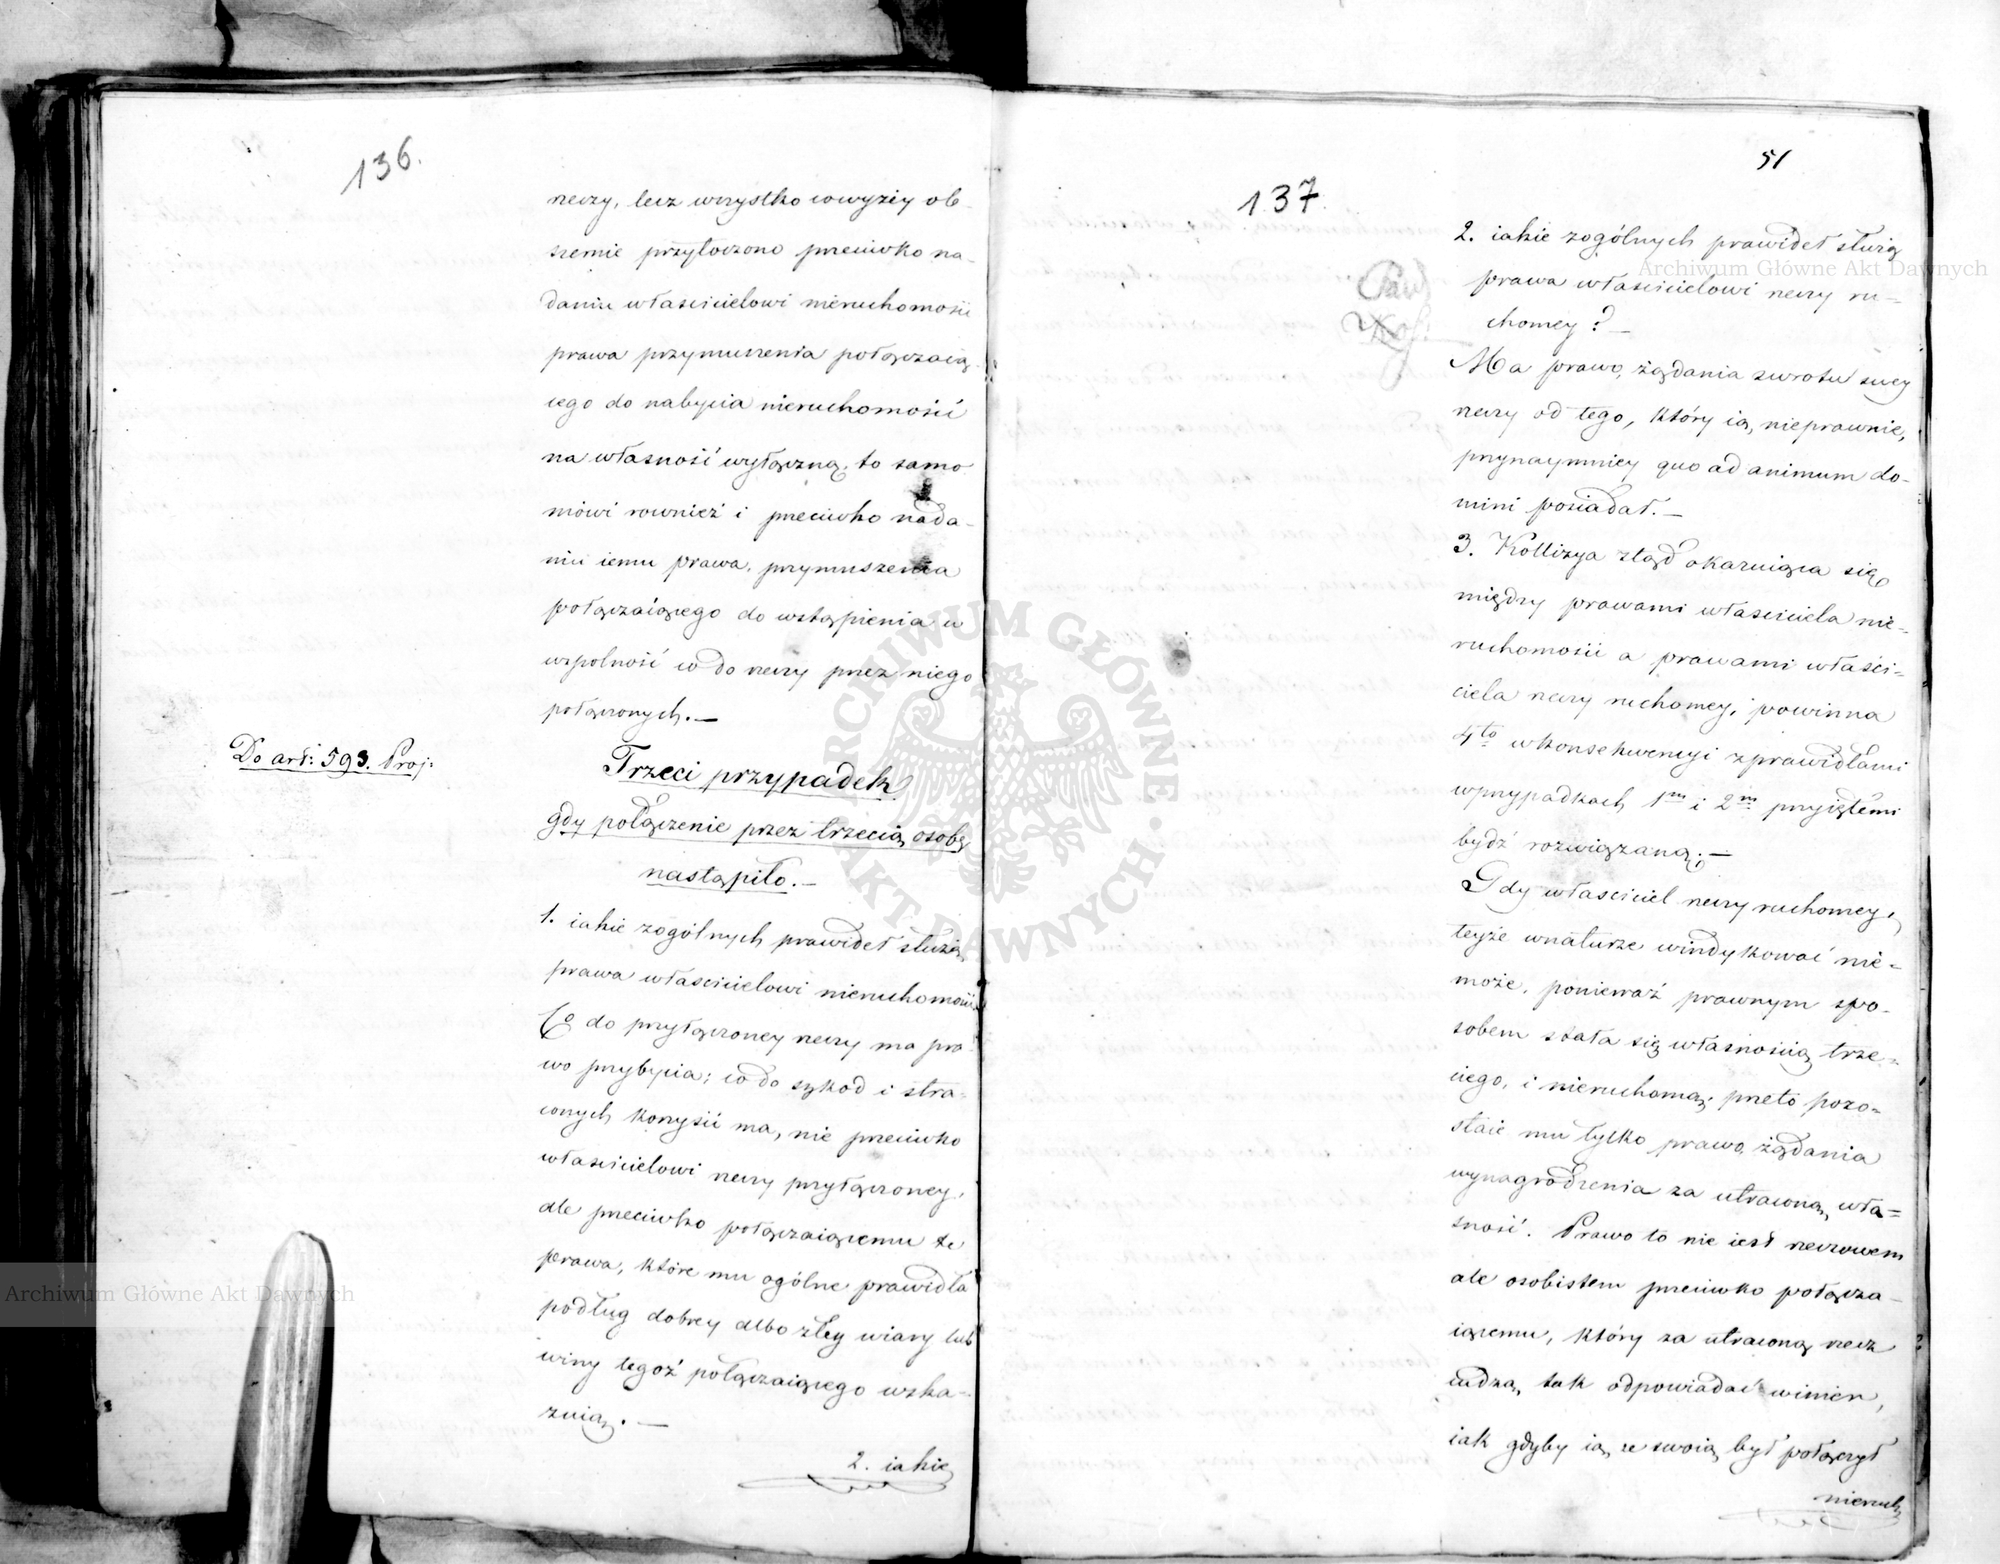 136.
rzeczy, lecz wszystko cowyżéy ob-
szernie przytoczono przeciwko na-
daniu właścicielowi nieruchomości
prawa przymuszenia połączaią-
cego do nabycia nieruchomości
na własność wyłączną, to samo
mówi rownież i przeciwko nada-
niu iemu prawa, przymuszenia
połączaiącego do wstąpienia w
wspolność co do rzeczy przez niego
połączonych.—
Do art: 593. Proj:
Trzeci przypadek
gdy połączenie przez trzecią osobę
nastąpiło.—
1. iakie zogólnych prawideł służą
prawa właścicielowi nieruchomości.
Co do przyłączoney rzeczy ma pra-
wo przybycia; co do szkod i stra-
conych korzyści ma, nie przeciwko
właścicielowi rzeczy przyłączoney,
ale przeciwko połączaiącemu te
prawa, które mu ogólne prawidła
podług dobrey albo złey wiary lub
winy tegoż połączaiącego wska-
zuią.—
2. iakie
137.
51
2. iakie zogólnych prawideł służą
prawa właścicielowi rzeczy ru-
chomey?—
Ma prawo, żądania zwrotu swey
rzeczy od tego, który ią, nieprawnie,
przynaymniey quo ad animum do-
mini posiadał.—
3. Kollizya ztąd okazuiąca się
między prawami właściciela nie-
ruchomości a prawami właści-
ciela rzeczy ruchomey, powinna
4to wkonsekwencyi zprawidłami
wprzypadkach 1m i 2m przyiętemi
bydź rozwiązaną;—
Gdy właściciel rzeczy ruchomey,
teyże wnaturze windykować nie-
może, ponieważ prawnym spo-
sobem stała się własnością trze-
ciego, i nieruchomą, przeto pozo-
staie mu tylko prawo, żądania
wynagrodzenia za utraconą, wła-
sność. Prawo to nie iest rzeczowem
ale osobistem przeciwko połącza-
iącemu, który za utraconą rzecz
cudzą, tak odpowiadać winien,
iak gdyby ią ze swoią był połączył
nieruch.
Archiwum Główne Akt Dawnych
Archiwum Główne Akt Dawnych
ARCHIWUM GŁÓWNE AKT DAWNYCH